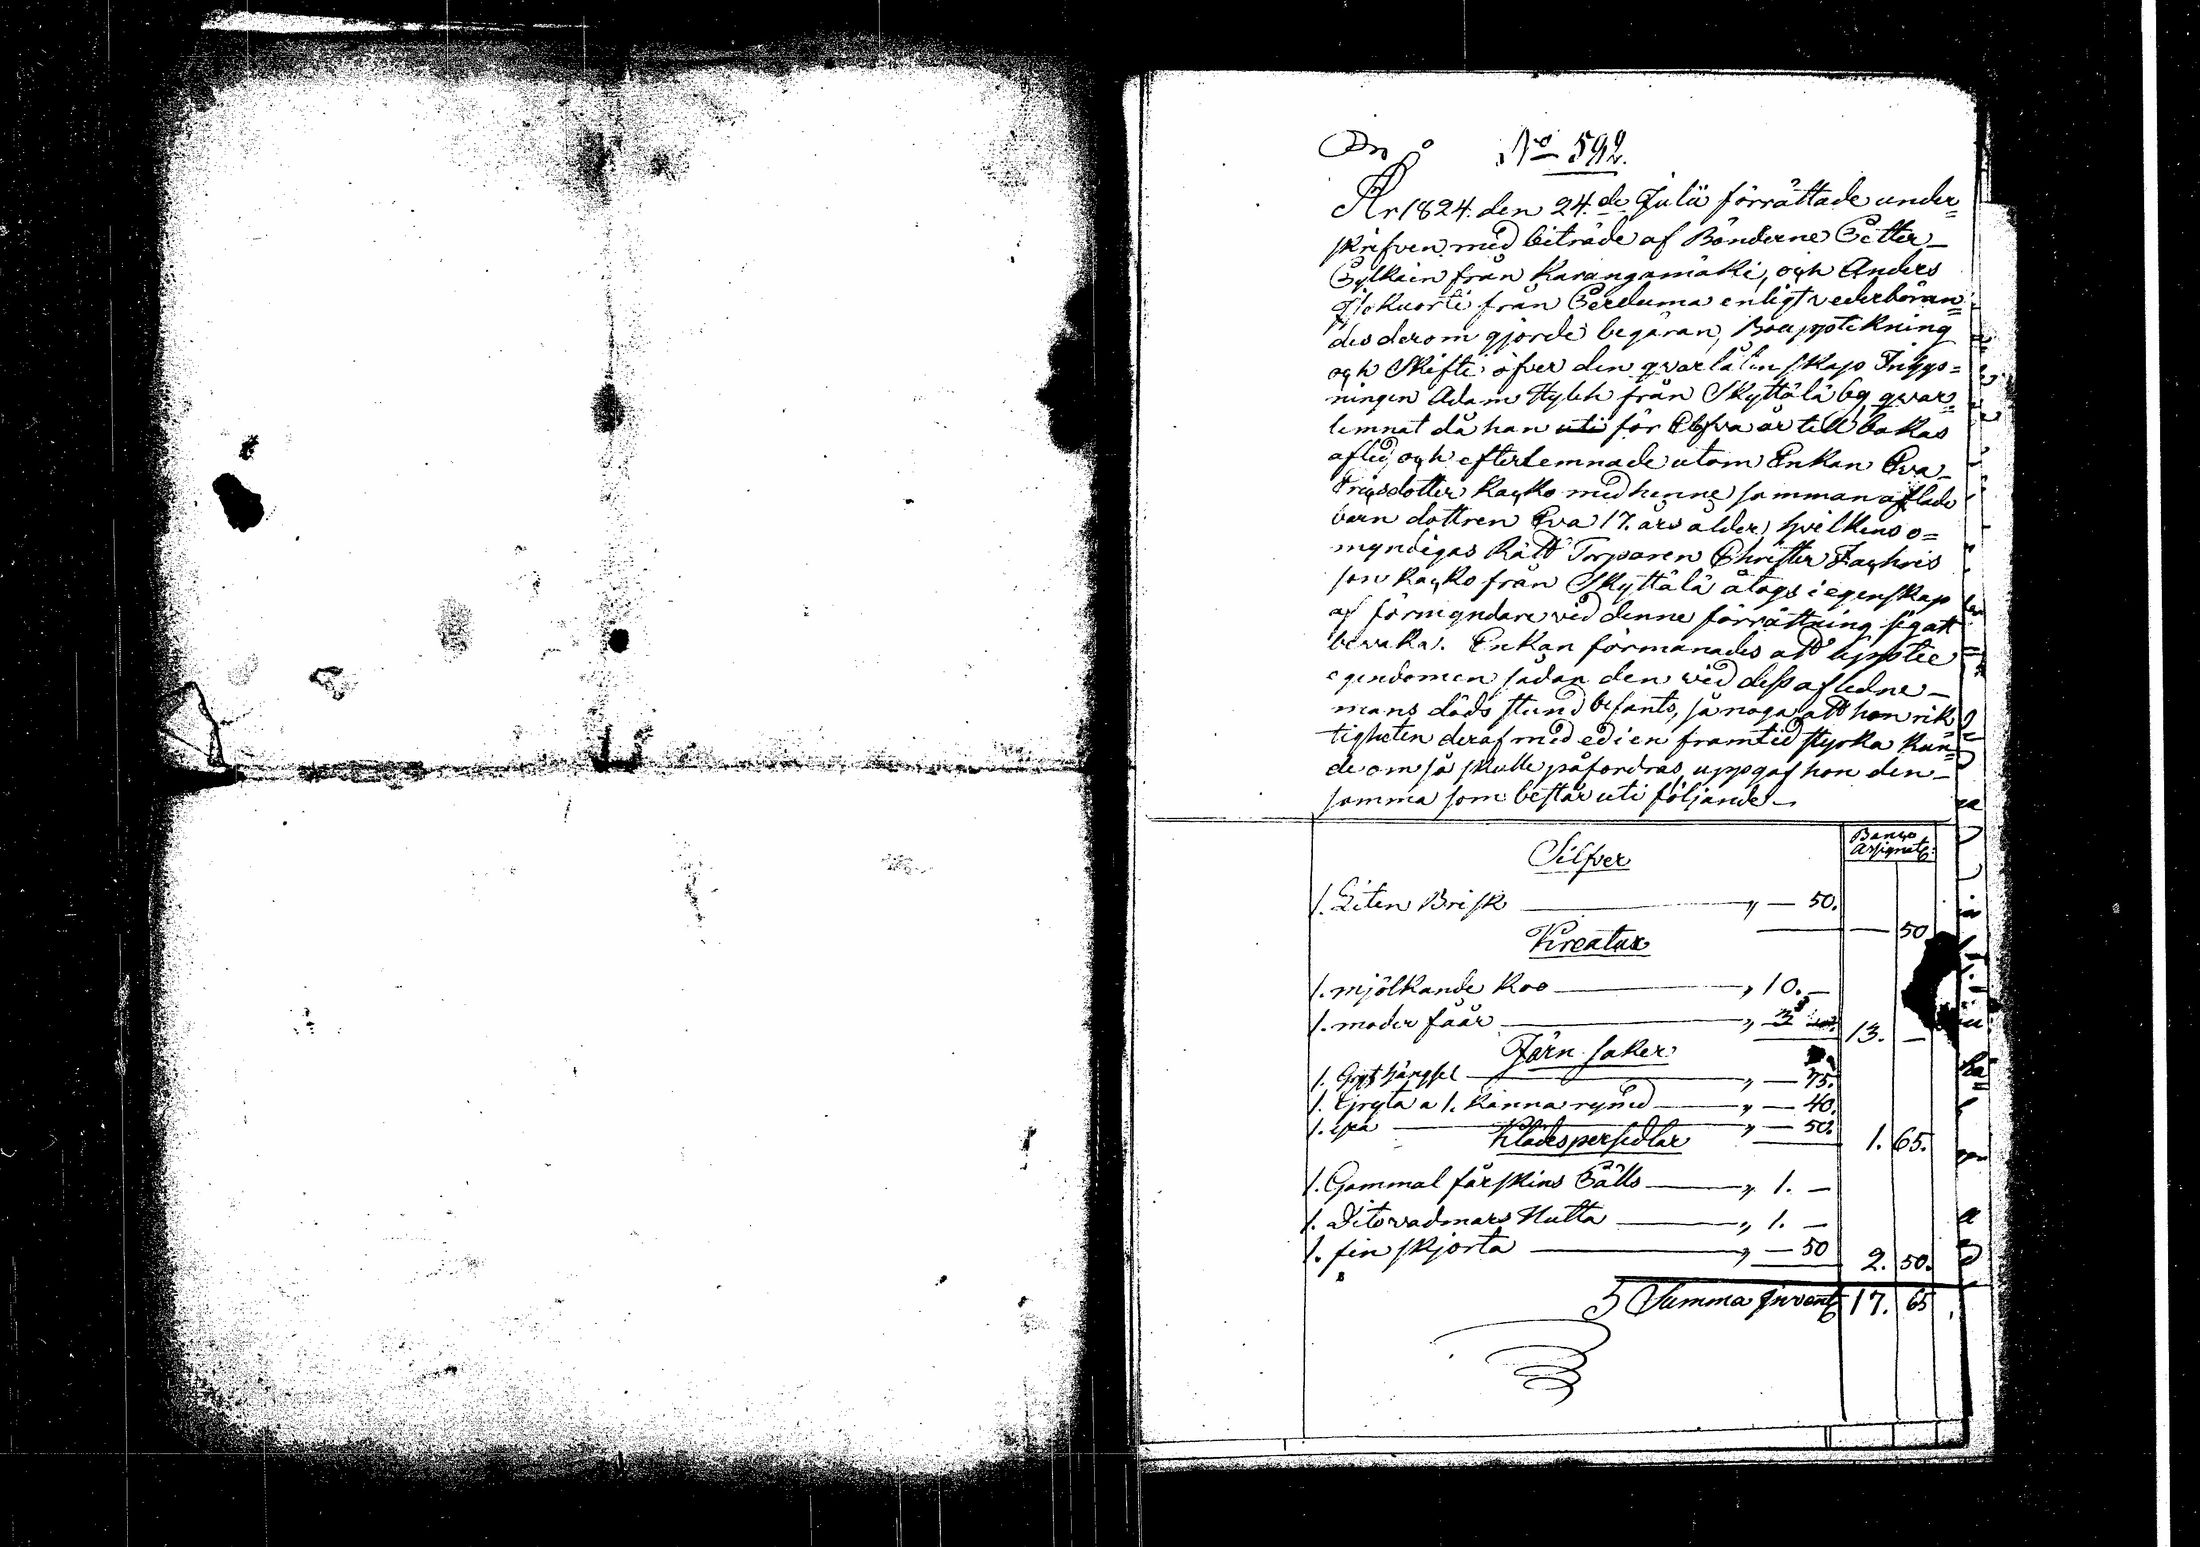 No 592.
År 1824. den 24.de Julii förrättade under=
skrifven, med biträde af Bönderne Petter
Pylkäin från Karangamäki, och Anders
från Perduma enligt vederböran=
des derom gjorde begäran, Bouppteckning
och Skifte öfver den qvarlåtenskap Inhys=
ningen Adam från Skyttälä by qvar=
lemnat då han uti för Elfva år tillbakas
afled, och efterlemnade utom Enkan Eva
Ericsdotter Kaukko med henne samman aflade
barn dottren Eva 17. års ålder, hvilkens o=
myndigas Rätt Torparen Christer Zachris
son Kaukko från Skyttälä åtogs i egenskap
af förmyndare vid denne förrättning sig att
bevaka. Enkan förmanades att uppte
egendomen sådan den vid dess aflidne
mans döds stund befants, så noga, att hon rik=
tigheten deraf med ed i en framtid styrka kun=
de om så skulle påfordras, uppgaf hon den=
samma som består uti följande
Banco Assignat:
Silfver
1. Liten Brisk „ — 50.
— 50
Kreatur
1. mjölkande Koo „ 10. —
1. moder fåår „ 3
13. —
Järn saker
1. Grythängsel „ — 75.
1. Gryta a 1. Kanna rymd „ — 40.
1. yxa „ — 50.
1. 65.
Klädespersedlar
1. Gammal fårskins Pälls „ 1. —
1. Dito vadmars Nutta „ 1. —
1. fin skjorta „ — 50
2. 50.
Summa Invent: 17. 65